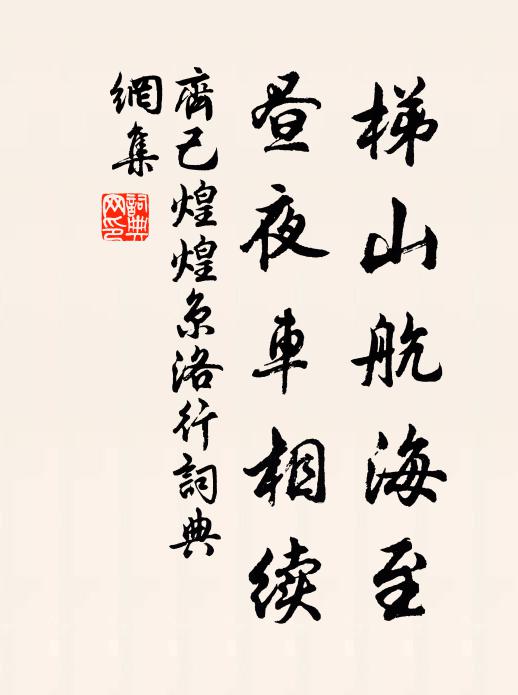 梯山航海至
昼夜車相续
齊己煌煌京洛行詞典
網集
詞典网印